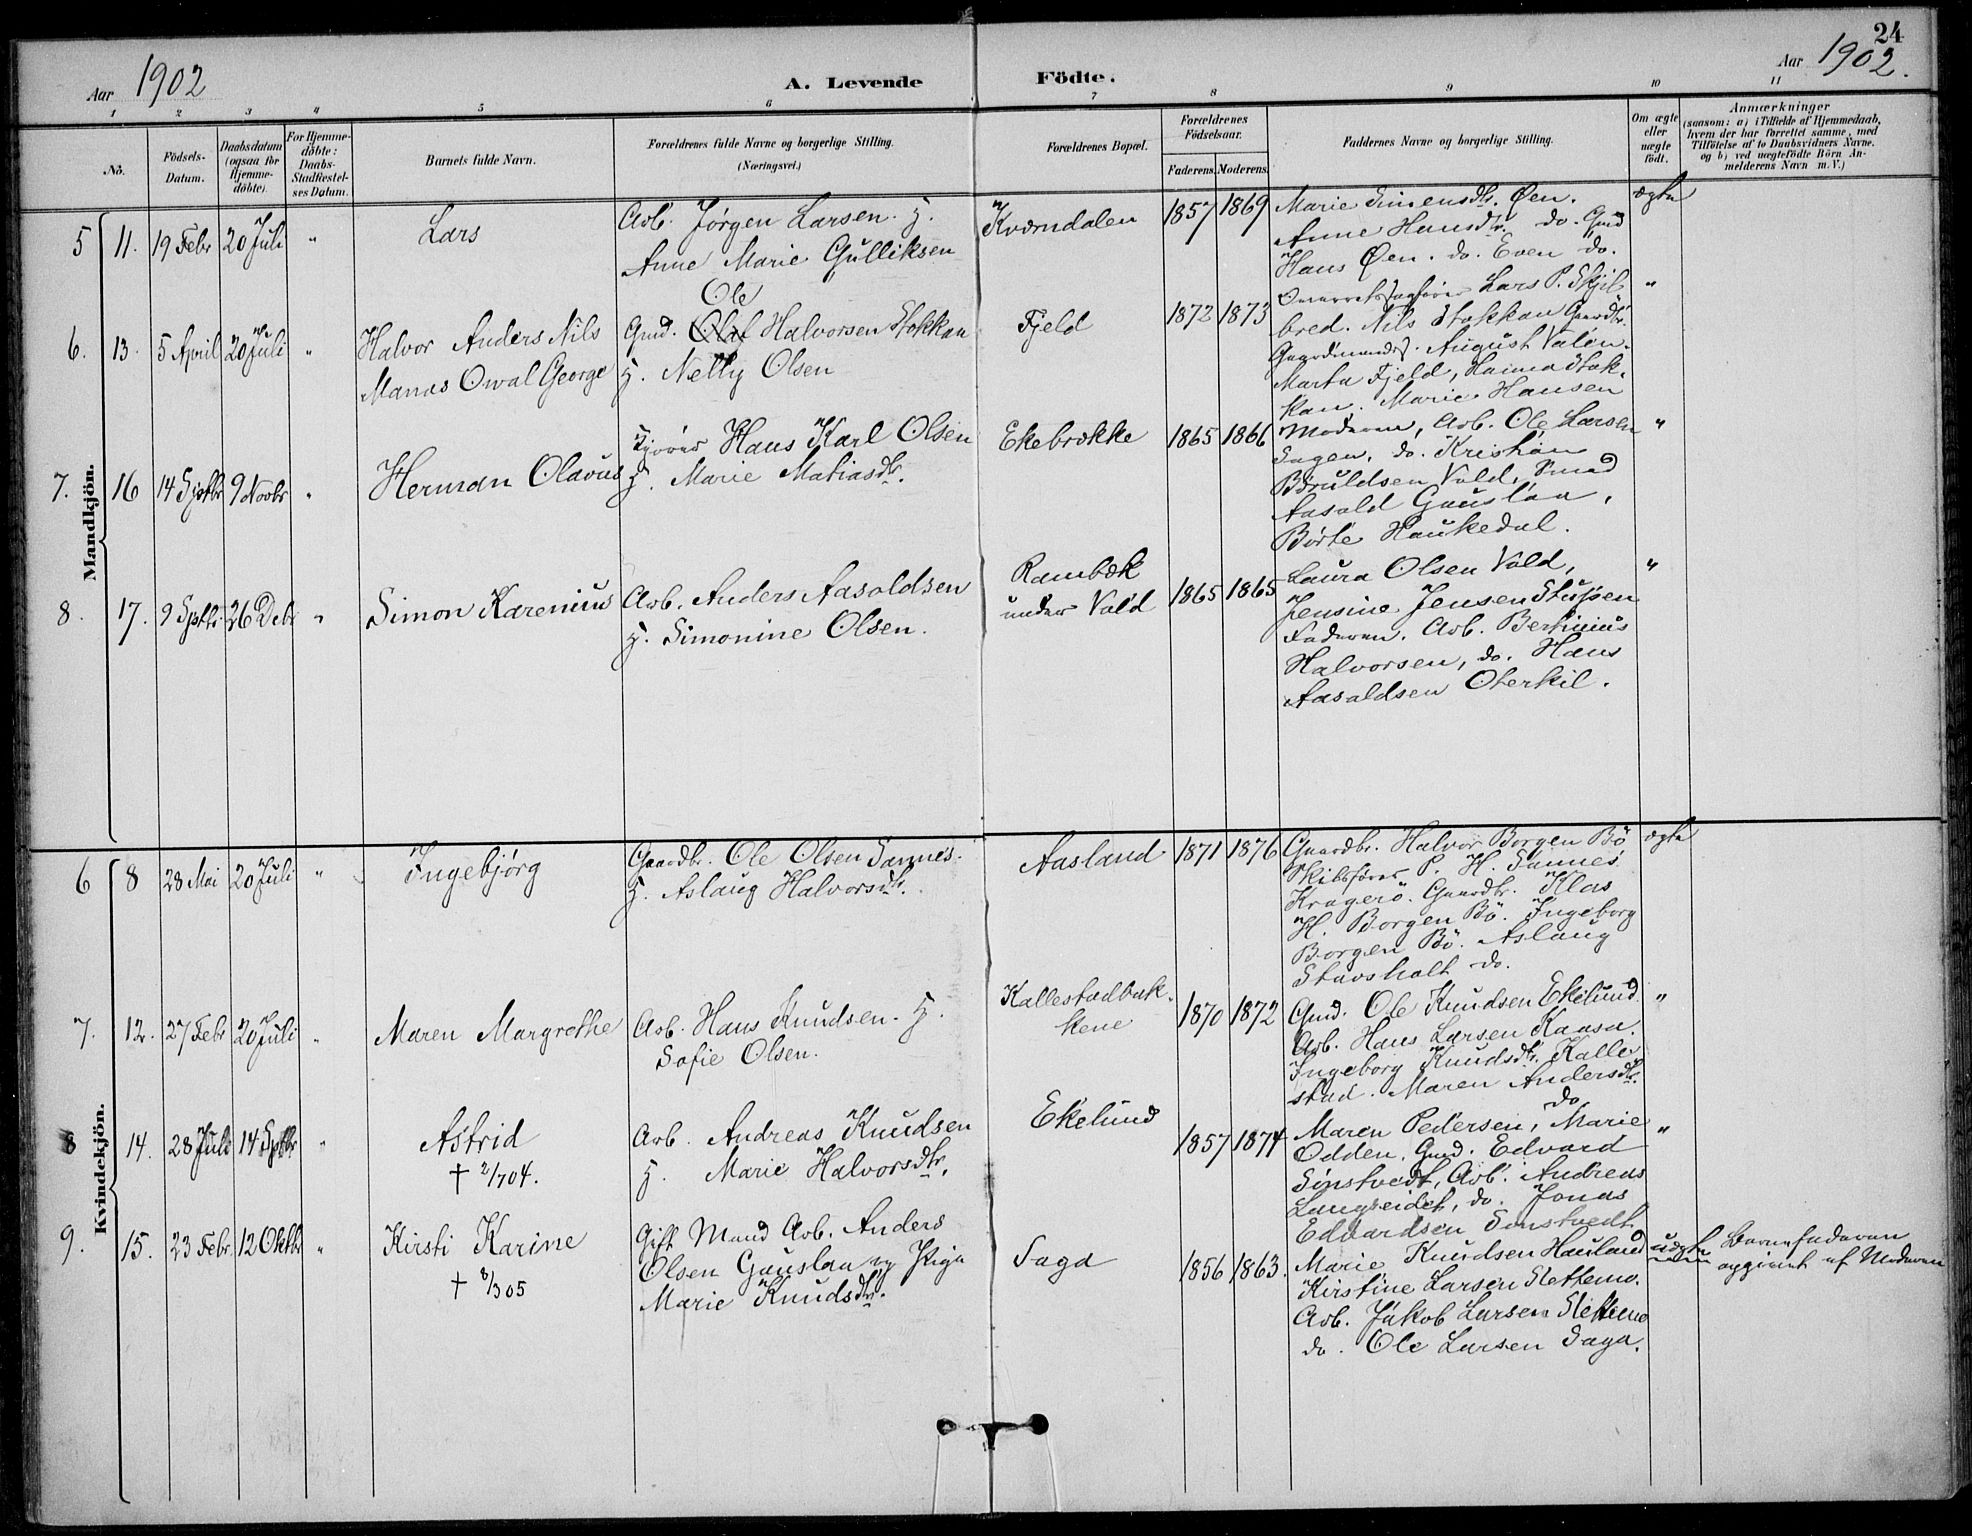 24
Aar 1902
A. Levende Födte.
Aar 1902.
1 2 3 4 5 6 7 8 9 10 11
No.
Födsels-
Datum.
Daabsdatum
(ogsaa for
Hjemme-
döbte).
For Hjemme-
döbte:
Daabs-
Stadfæstel-
ses Datum.
Barnets fulde Navn.
Forældrenes fulde Navne og borgerlige Stilling.
(Næringsvei.)
Forældrenes Bopæl.
Forældrenes
Födselsaar.
Faderens. Moderens.
Faddernes Navne og borgerlige Stilling.
Om ægte
eller
uægte
födt.
Anmærkninger
(saasom: a) i Tilfælde af Hjemmedaab,
hvem der har forrettet samme, med
Tilföielse af to Daabsvidners Navne,
og b) ved uægtefödte Börn An-
melderens Navn m. V.)
Mandkjön.
5 11. 19 Febr 20 Juli "
Lars
Arb. Jørgen Larsen. H.
Anne Marie Gulliksen
Kværndalen
1857 1869
Marie Simensdtr. Øen.
Anne Hansdtr. do. Gmd
Hans Øen. do. Even do.
ægte
6. 13. 5 April 20 Juli "
Halvor Anders Nils
Manas Orval George
Ole
Gmd. Olaf Halvorsen Stokkan
H. Nelly Olsen
Fjeld
1872 1873
Overretssagfører Lars P. Skjel
bred. Nils Stokkan Gaardbr.
Gaardmands. August Valen.
Marta Fjeld, Haima Stok-
kan. Marie Hansen
"
7. 16 14 Septbr 9 Novbr "
Herman Olavus
Kjører Hans Karl Olsen
H. Marie Matiasdtr.
Ekebrække
1865 1866
Moderen, Arb. Ole Larsen
Sagen, do. Kristian
Børuldsen Vold, Smed
Aasold Gauslaa,
Børte Haukedal.
"
8. 17. 9 Septbr 26 Debr "
Simon Karenius
Arb. Anders Aasoldsen
H. Simonine Olsen.
Rambæk
under Vold
1865 1865
Laura Olsen Vold,
Jensine Jensen Stusen
Faderen. Arb. Bertinius
Halvorsen, do. Hans
Aasoldsen Oterkil.
"
Kvindekjön.
6 8 28 Mai 20 Juli "
Ingebjørg
Gaardbr. Ole Olsen Sannes.
H. Aslaug Halvorsdtr.
Aasland
1871 1876
Gaardbr. Halvor Borgen Bö
Skibsfører P. H. Sannes
Kragerö. Gaardbr. Klas
H. Borgen Bö. Ingeborg
Borgen Bö. Aslaug
Stavsholt do.
ægte
7. 12. 27 Febr 20 Juli "
Maren Margrethe
Arb. Hans Knudsen. H.
Sofie Olsen.
Kallestadbak-
kene
1870 1872
Gmd. Ole Knudsen Ekelund.
Arb. Hans Larsen Kaasa.
Ingeborg Knudsdtr. Kalle-
stad. Maren Andersdtr.
do
"
8 14. 28 Juli 14 Septbr "
Astrid
† 2/7 04.
Arb. Andreas Knudsen
H. Marie Halvorsdtr.
Ekelund
1857 1874
Maren Pedersen, Marie
Odden, Gmd. Edvard
Sønstvedt, Arb. Andreas
Langseidet, do. Jonas
Edvardsen Sønstvedt
"
9. 15. 23 Febr. 12 Oktbr "
Kirsti Karine
† 8/3 05
Gift Mand Arb. Anders
Olsen Gauslaa og Pige
Marie Knudsdtr.
Saga
1856 1863.
Marie Knudsen Hauland
Kirstine Larsen Slettemo.
Arb. Jakob Larsen Slettemo
do. Ole Larsen Saga.
uægte
Barnefaderen
opgivet af Moderen